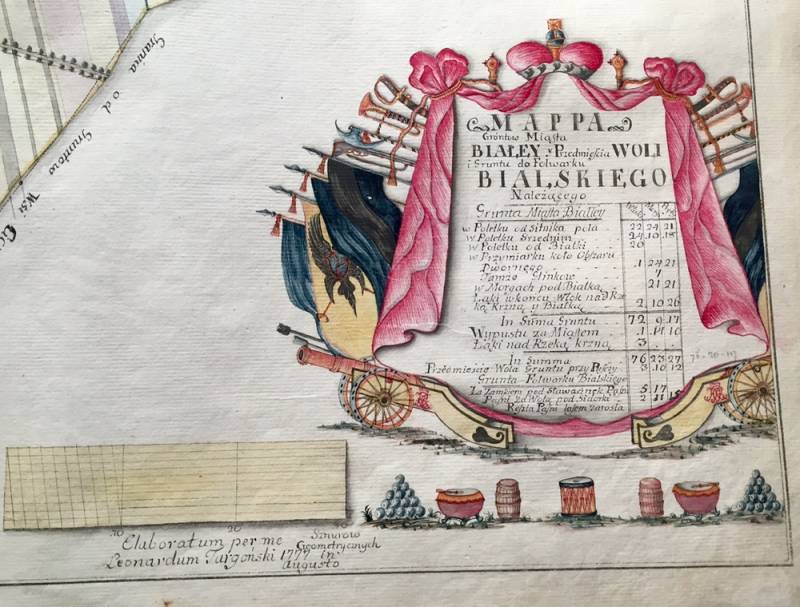 Granica od Gruntow Wsi
MAPPA
Gróntów Miasta
BIAŁEY y Przedmieścia WOLI
i Gruntu do Folwarku
BIALSKIEGO
Należącego
Grunta Miasta Białey
w Poletku od Sitnika pola 22 24 21
w Poletku Srzednim 24 10 18
w Poletku od Białki 20
w Przymiarku koło Obszaru
Dwornego 1 24 21
Tamże Glinkow 7
w Morgach pod Białką 21 21
Łąki w końcu Włok nad Rze
ką Krzną y Białką 2 10 26
In Suma Gruntu 72 9 17
Wypustu za Miastem 1 10
Łąki nad Rzeką krzną 3
In Summa 76 23 27
Przedmieście Wola Gruntu przy 3 10 12
Grunta Folwarku Bialskiego
Za Zamkiem pod 5 17
za Wolą pod 2 15
Reszta lasem zarosła
10 20
Sznurow
Geometrycznych
Elaboratum per me
Leonardum Targoński 1777 in
Augusto